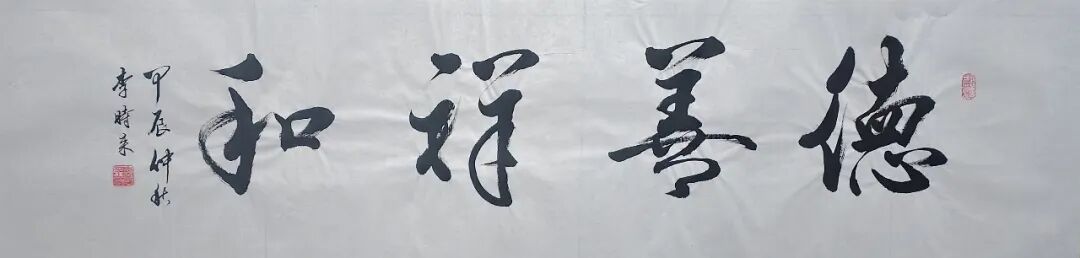 德善祥和
甲辰仲秋
李時来